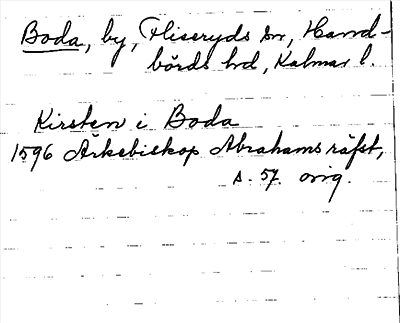 Boda, by, Fliseryds sn, Hand-
börds hd, Kalmar l.
Kirsten i Boda
1596 Ärkebiskop Abrahams räfst,
s. 57. orig.